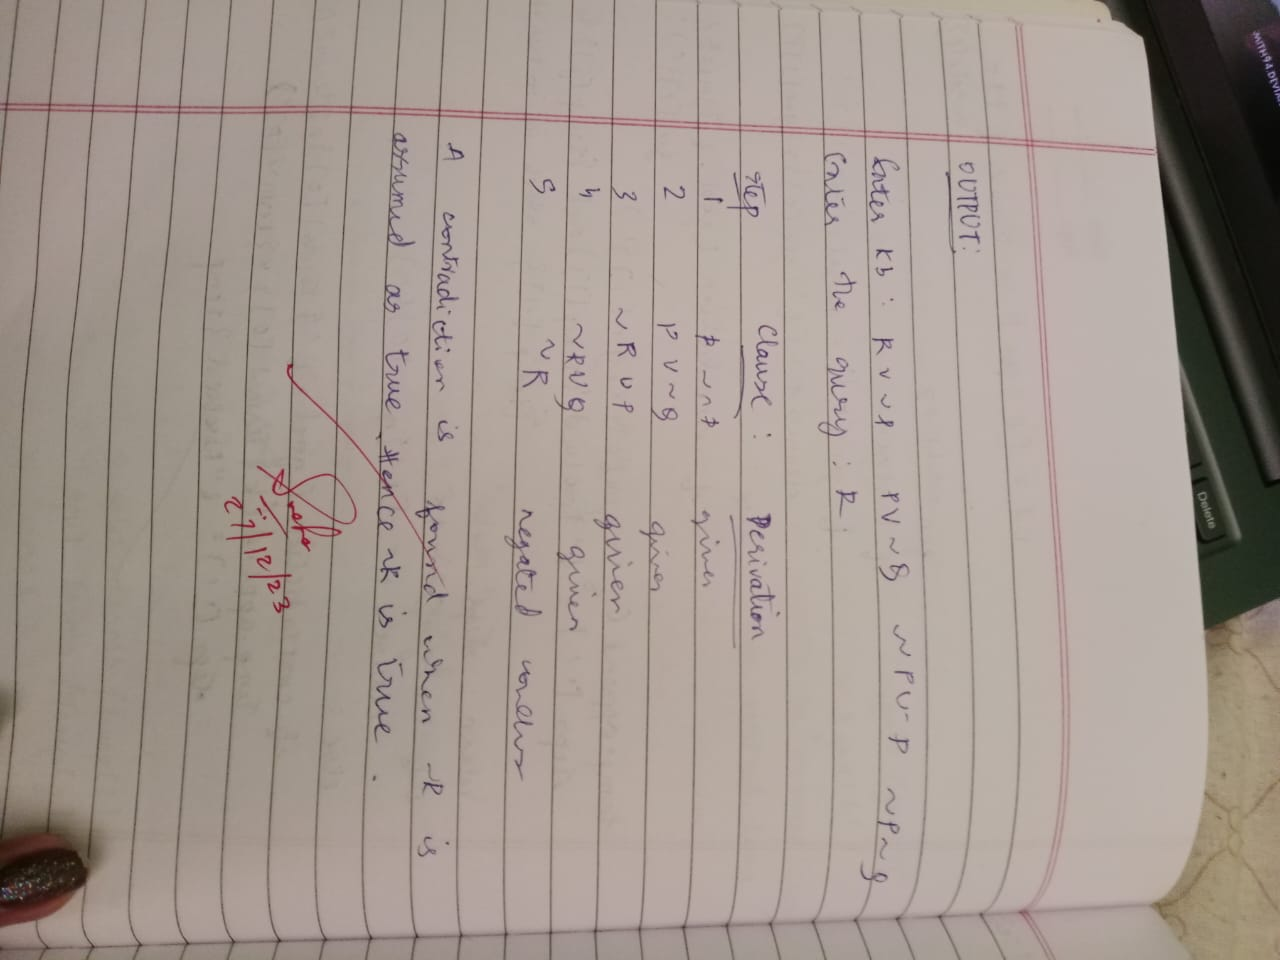 OUTPUT:
Enter kb : R v ~ P PV ~ Q ~ PV - P ~ P ~ Q
Enter the query : R.
Step Clause : Derivation
1 given
2 P V ~ Q given
3 ~ R V P given
4 ~ R V Q given
5 ~ R negated
A contradiction is found when ~R is
assumed as true. Hence ~R is true.
27/12/23
Delete